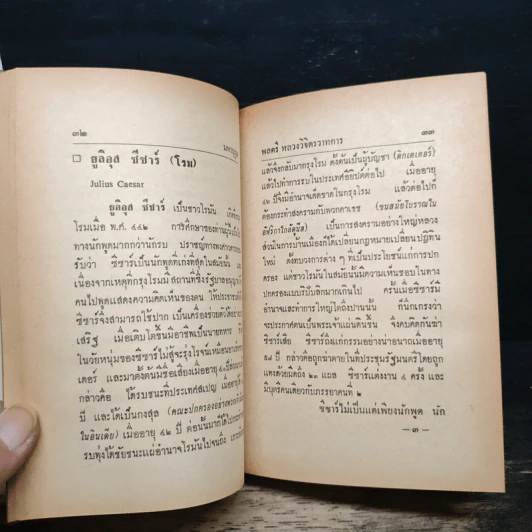 ๓๒
มหาบุรุษ
☐ ยูลิอุส ซีซาร์ (โรม)
Julius Caesar
ยูลิอุส ซีซาร์ เป็นชาวโรมัน เกิดที่กรุง
โรมเมื่อ พ.ศ. ๔๔๒ การศึกษาของท่านผู้นี้
ทางนักพูดมากกว่านักรบ ปราชญ์ทางพงศาวดาร
รับว่า ซีซาร์เป็นนักพูดที่เก่งที่สุดในสมัยนั้น
เนื่องจากเหตุที่กรุงโรมมีสถานที่ซึ่งรัฐบาลอนุญาต
คนไปพูดแสดงความคิดเห็นของตน ให้ประชาชน
ซีซาร์จึงสามารถใช้ปาก เป็นเครื่องช่วยตัวได้
เสริฐ เมื่อเติบโตขึ้นมีอาชีพเป็นนายทหาร
ในวัยหนุ่มของซีซาร์ไม่สู้จะรุ่งโรจน์เหมือน
เดอร์ และมาตั้งต้นมีชื่อเสียงเมื่ออายุ
กล่าวคือ ได้รบชนะที่ประเทศสเปญ เมื่ออายุ
ปี และได้เป็นกงสุล (คณะปกครองอย่าง
ในอินเดีย) เมื่ออายุ ๔๒ ปี ต่อนั้นมาก็ได้ไป
รบพุ่งได้ชัยชนะแผ่อำนาจโรมันไปจนถึง
พลตรี หลวงวิจิตรวาทการ
๓๓
แล้วจึงกลับมากรุงโรม ตั้งตนเป็นผู้บัญชา (ดิกเตเตอร์)
แล้วไปทำการรบในประเทศอียิปต์ต่อไป เมื่ออายุ
๔๖ ปีจึงมีอำนาจเด็ดขาดในกรุงโรม แล้วต่อไปก็
ต้องกระทำสงครามกับพวกคาเรช (ชนสมัยโบราณใน
อัฟริกาใกล้ตูนิส) เป็นสงครามอย่างใหญ่หลวง
ส่วนในการบ้านเมืองก็ได้เปลี่ยนกฎหมายเปลี่ยนปฏิทิน
ใหม่ ตั้งทบวงการต่าง ๆ ที่เป็นประโยชน์แก่การปก
ครอง แต่ชาวโรมันในสมัยนั้นมีความเห็นชอบในทาง
ปกครองแบบริปับลิกมากเกินไป ครั้นเมื่อซีซาร์มี
อำนาจและทำการใหญ่โตถึงปานนั้น ก็นึกเกรงว่า
จะประกาศตนเป็นพระเจ้าแผ่นดินขึ้น จึงคบคิดกันฆ่า
ซีซาร์เสีย ซีซาร์ถึงแก่กรรมอย่างน่าอนาถเมื่ออายุ
๕๗ ปี กล่าวคือถูกฆ่าตายในที่ประชุมรัฐมนตรีโดยถูก
แทงด้วยมีดถึง ๒๓ แผล ซีซาร์แต่งงาน ๔ ครั้ง และ
มีบุตรีคนเดียวกับภรรยาคนที่ ๒
ซีซาร์ไม่เป็นแต่เพียงนักพูด นัก
— ๓ —